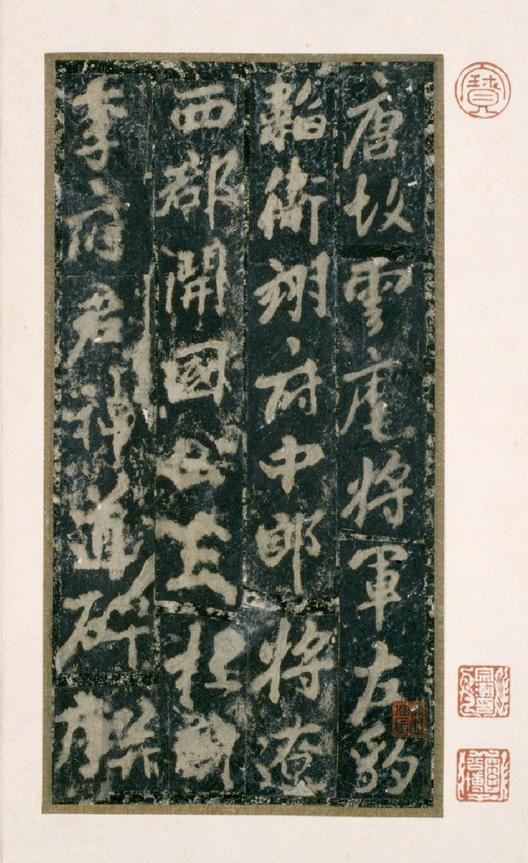 唐故雲麾將軍左豹
韜衛翊府中郎將遼
西郡開國公上柱國
李府君神道碑并序
寶